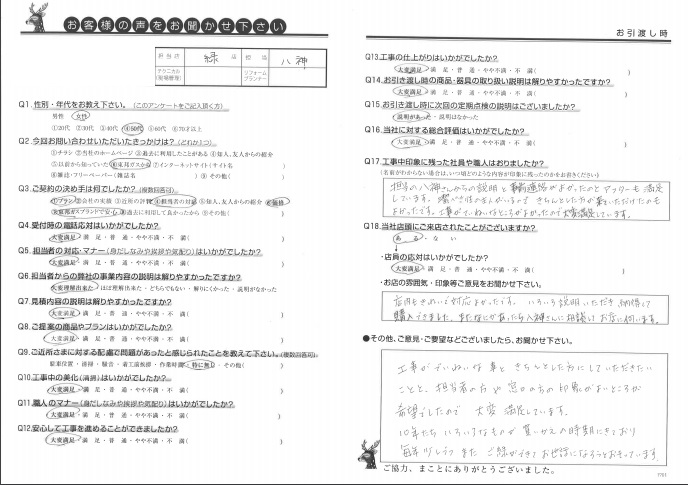 お客様の声をお聞かせ下さい
担当店 緑 店 担当 八神
テクニカル(現場管理) リフォームプランナー
Q1.性別・年代をお教え下さい。(このアンケートをご記入頂く方)
男性 女性
①20代 ②30代 ③40代 ④50代 ⑤60代 ⑥70才以上
Q2.今回お問い合わせいただいたきっかけは?(どれか1つ)
①チラシ ②当社のホームページ ③過去に利用したことがある ④知人、友人からの紹介
⑤以前から知っていた ⑥東邦ガスから ⑦インターネットサイト(サイト名 )
⑧雑誌・フリーペーパー(雑誌名 ) ⑨その他( )
Q3.ご契約の決め手は何でしたか?(複数回答可)
①プラン ②会社の実績 ③近所の評判 ④担当者の対応 ⑤知人、友人からの紹介 ⑥価格
⑦東邦ガスブランドで安心 ⑧過去に利用して良かったから ⑨その他( )
Q4.受付時の電話応対はいかがでしたか?
大変満足・満 足・普 通・やや不満・不 満( )
Q5.担当者の対応・マナー(身だしなみや挨拶や気配り)はいかがでしたか?
大変満足・満 足・普 通・やや不満・不 満( )
Q6.担当者からの弊社の事業内容の説明は解りやすかったですか?
大変理解出来た・ほぼ理解出来た・どちらでもない・解りにくかった・説明がなかった
Q7.見積内容の説明は解りやすかったですか?
大変満足・満 足・普 通・やや不満・不 満( )
Q8.ご提案の商品やプランはいかがでしたか?
大変満足・満 足・普 通・やや不満・不 満( )
Q9.ご近所さまに対する配慮で問題があったと感じられたことを教えて下さい。(複数回答可)
駐車位置・清掃・騒音・着工前挨拶・作業時間・特に無し・その他( )
Q10.工事中の美化(清掃)はいかがでしたか?
大変満足・満 足・普 通・やや不満・不 満( )
Q11.職人のマナー(身だしなみや挨拶や気配り)はいかがでしたか?
大変満足・満 足・普 通・やや不満・不 満( )
Q12.安心して工事を進めることができましたか?
大変満足・満 足・普 通・やや不満・不 満( )
お引渡し時
Q13.工事の仕上がりはいかがでしたか?
大変満足・満 足・普 通・やや不満・不 満( )
Q14.お引き渡し時の商品・器具の取り扱い説明は解りやすかったですか?
大変満足・満 足・普 通・やや不満・不 満( )
Q15.お引き渡し時に次回の定期点検の説明はございましたか?
説明があった・説明はなかった
Q16.当社に対する総合評価はいかがでしたか?
大変満足・満 足・普 通・やや不満・不 満( )
Q17.工事中印象に残った社員や職人はおりましたか?
(名前がわからない場合は、いつ頃どのような内容が印象に残ったのかをお書きください)
担当の八神さんからの説明と がよかったのとアフターも満足
しています。 きちんとした方が いただけたのも
よかったです。工事がていねいなところがよかったので大変満足しています。
Q18.当社店頭にご来店されたことがございますか?
ある・ない
・店員の応対はいかがでしたか?
大変満足・満 足・普 通・やや不満・不 満( )
・お店の雰囲気・印象等ご意見をお聞かせ下さい。
店内もきれいで対応よかったです。いろいろ説明いただき、納得して
購入できました。またなにかあったら八神さんに相談しお店に伺います。
●その他、ご意見・ご要望などございましたら、お聞かせ下さい。
工事がていねいな事ときちんとした方にしていただきたい
ことと、担当者の方や窓口の方の印象がよいところが
希望でしたので 大変満足しています。
10年たち いろいろなものが買いかえの時期にきており
毎年少しづつ またご縁ができてお世話になろうとおもっています。
ご協力、まことにありがとうございました。